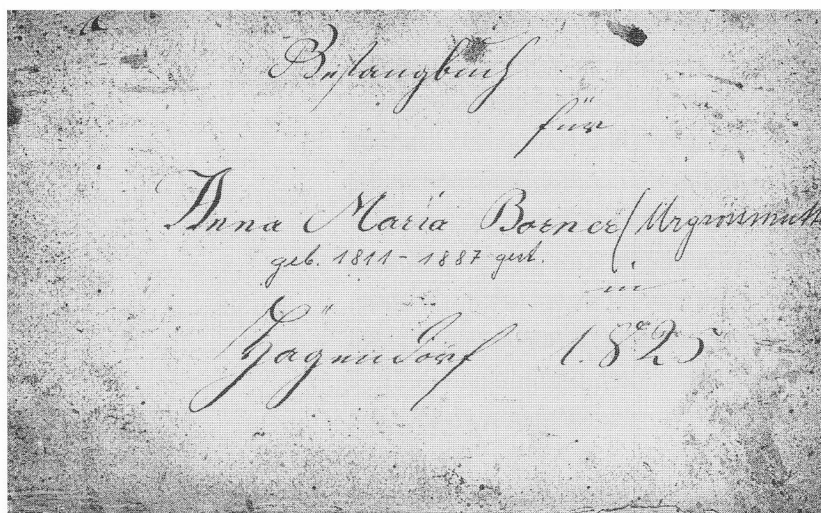 Gesangbuch
für
Anna Maria Borner (Urgrossmutt
geb. 1811 - 1887 gest.
in
Hägendorf 1825